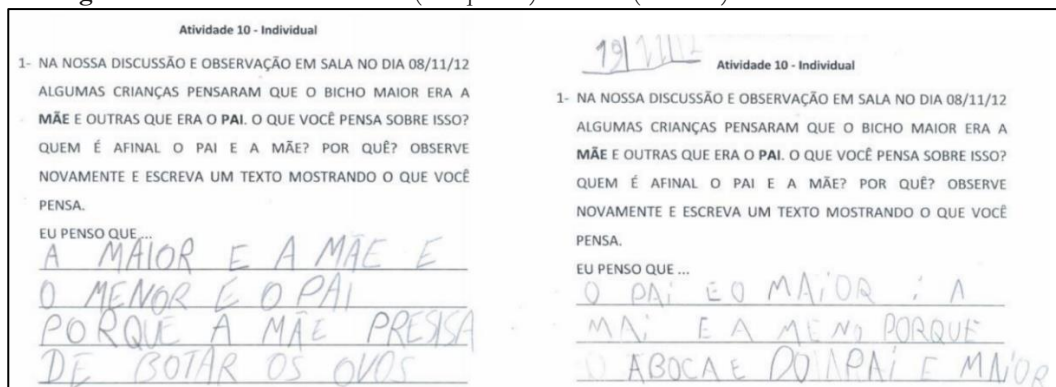 Atividade 10 - Individual
1- NA NOSSA DISCUSSÃO E OBSERVAÇÃO EM SALA NO DIA 08/11/12
ALGUMAS CRIANÇAS PENSARAM QUE O BICHO MAIOR ERA A
MÃE E OUTRAS QUE ERA O PAI. O QUE VOCÊ PENSA SOBRE ISSO?
QUEM É AFINAL O PAI E A MÃE? POR QUÊ? OBSERVE
NOVAMENTE E ESCREVA UM TEXTO MOSTRANDO O QUE VOCÊ
PENSA.
EU PENSO QUE ...
A MAIOR E A MÃE E
O MENOR E O PAI
PORQUE A MÃE PRESISA
DE BOTAR OS OVOS
19/11/12
Atividade 10 - Individual
1- NA NOSSA DISCUSSÃO E OBSERVAÇÃO EM SALA NO DIA 08/11/12
ALGUMAS CRIANÇAS PENSARAM QUE O BICHO MAIOR ERA A
MÃE E OUTRAS QUE ERA O PAI. O QUE VOCÊ PENSA SOBRE ISSO?
QUEM É AFINAL O PAI E A MÃE? POR QUÊ? OBSERVE
NOVAMENTE E ESCREVA UM TEXTO MOSTRANDO O QUE VOCÊ
PENSA.
EU PENSO QUE ...
O PAI E O MAIOR : A
MAI E A MENO PORQUE
O ABOCA E DO PAI E MAIOR